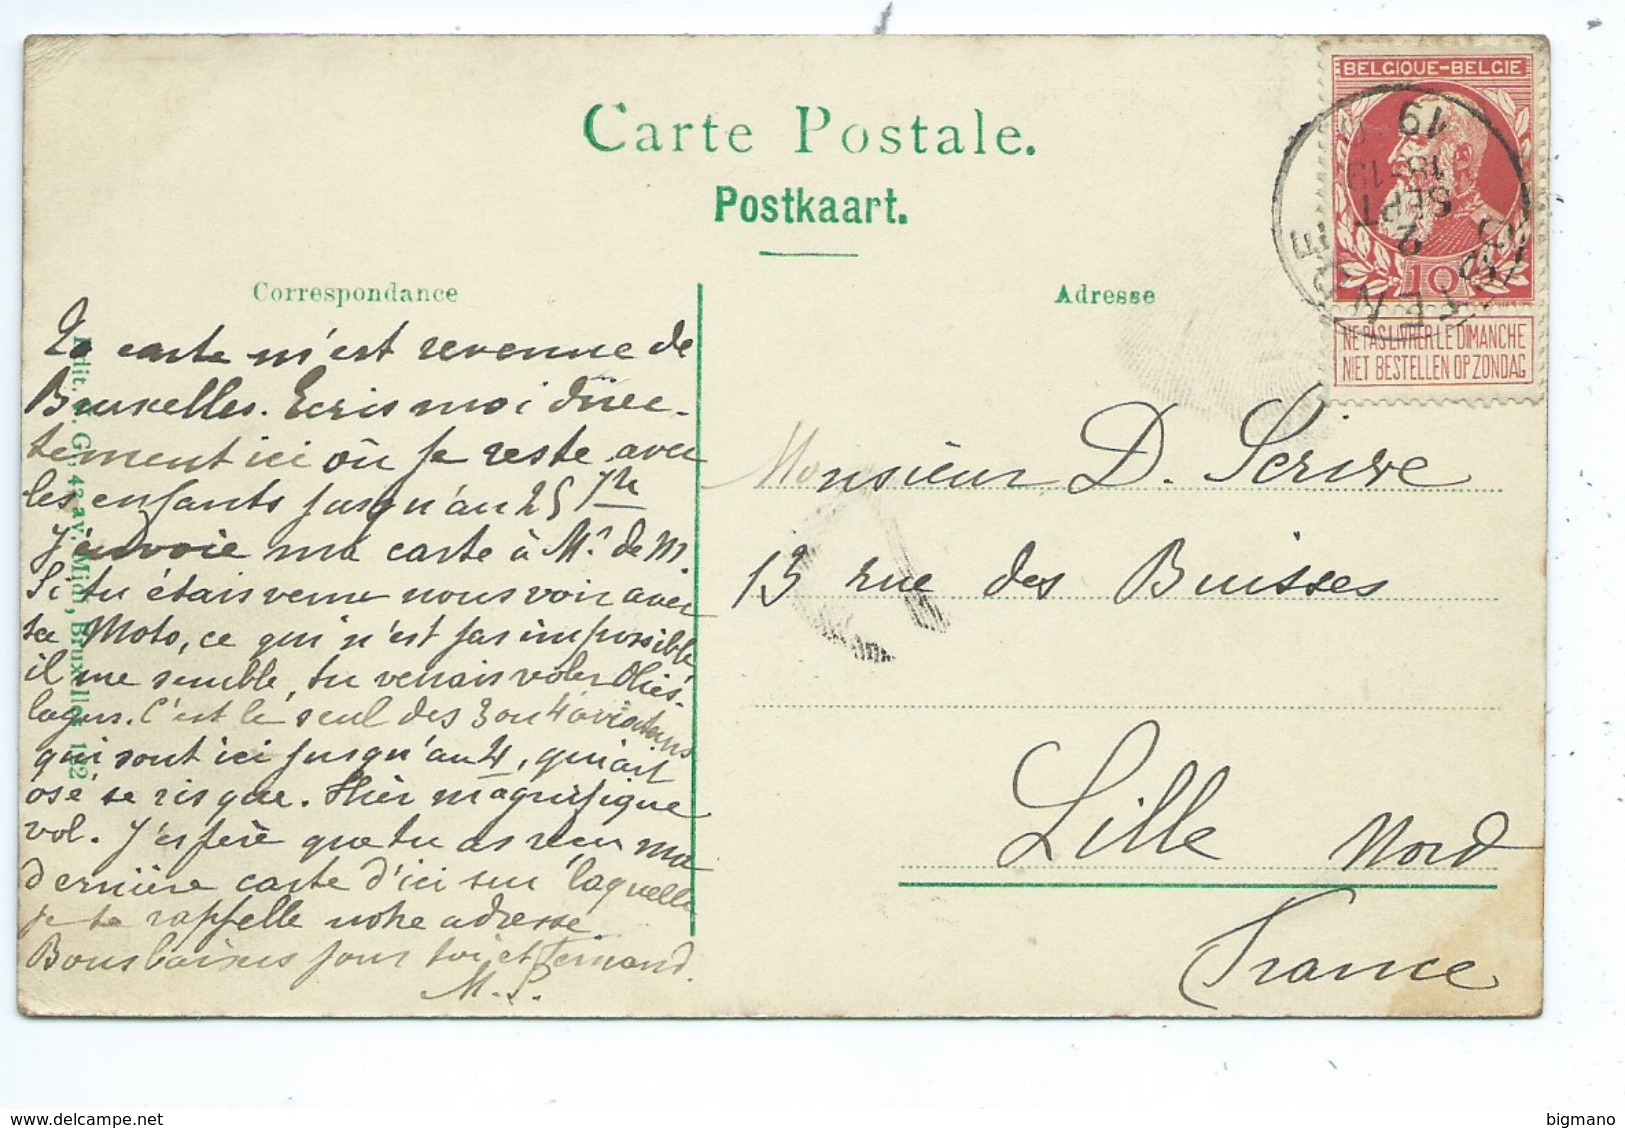 Carte Postale.
Postkaart.
Correspondance
Adresse
BELGIQUE-BELGIE
10
NE PAS LIVRER LE DIMANCHE
NIET BESTELLEN OP ZONDAG
OSTENDE
2
SEPT
18-19
19
Ta carte m'est revenue de
Bruxelles. Ecris moi direc-
tement ici où je reste avec
les enfants jusqu'au 25 7bre
J'envoie ma carte à Mr de M.
Si tu étais venu nous voir avec
ta Moto, ce qui n'est pas impossible
il me semble, tu verrais voler Olies-
lagers. C'est le seul des 3 ou 4 aviateurs
qui sont ici jusqu'au 4, qui ait
osé se risquer. Hier magnifique
vol. J'espère que tu as reçu ma
dernière carte d'ici sur laquelle
je te rappelle notre adresse.
Bons baisers pour toi et Fernand.
M. P.
Monsieur D. Scrive
13 rue des Buisses
Lille Nord
France
Edit. V. G., 42 av. Bruxelles 112
delcampe.net
bigmano